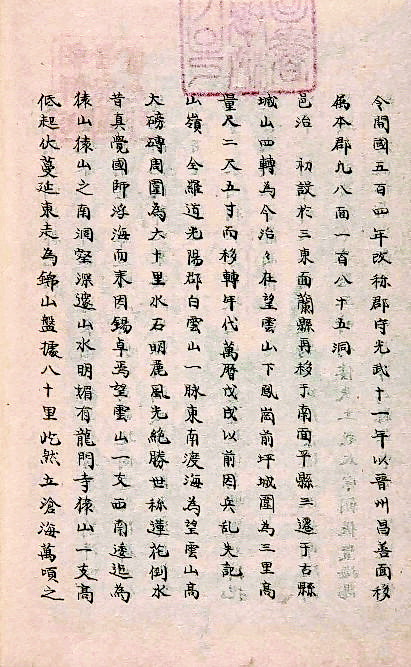 令開國五百四年改称郡守光武十一年以晋州昌善面移
属本郡九八面一百八十五洞
邑治 初設於三東面蘭縣再移于南面平縣三遷于古縣
城山四轉為今治々在望雲山下鳳崗前坪城圍為三里高
量尺二尺五寸而移轉年代萬曆戊戌以前因兵乱失記
山嶺 全羅道光陽郡白雲山一脉東南渡海為望雲山高
大磅礴周圍為大十里水石明麗風光絶勝世称蓮花倒水
昔真覺國師浮海而来因錫卓焉望雲山一支西南逺迤為
猿山猿山之南洞壑深邃山水明媚有龍門寺猿山一支高
低起伏蔓延東走為錦山盤據八十里屹然立滄海萬頃之